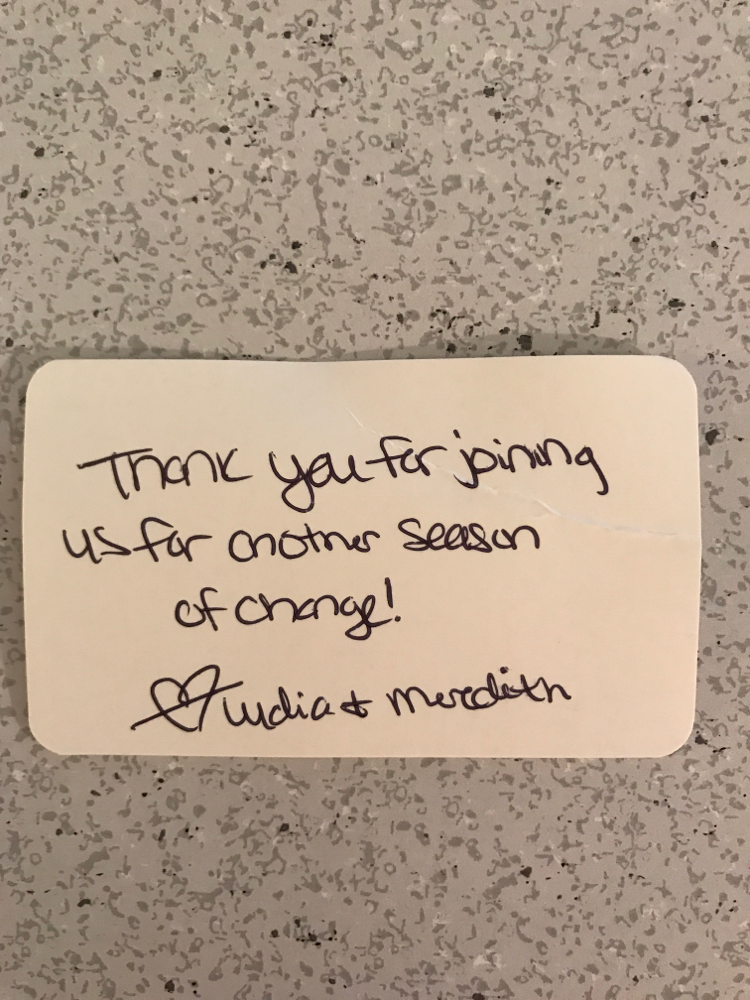 Thank you for joining
us for another season
of change!
♡ Lydia + Meredith